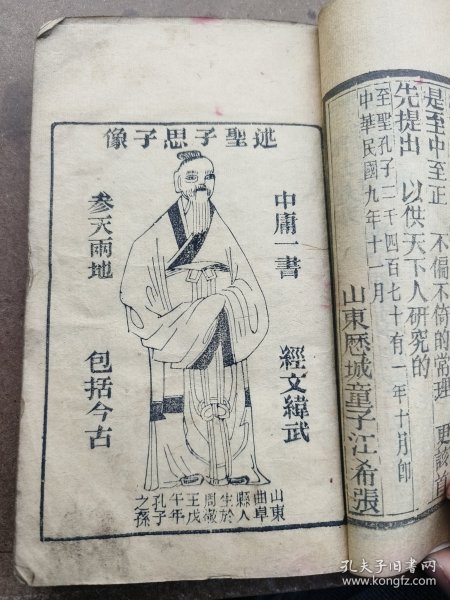 是至中至正 不偏不倚的常理 更該首
先提出 以供天下人研究的
至聖孔子二千四百七十有一年十月卽
中華民國九年十一月
山東歷城童子江希張
述聖子思子像
中庸一書
經文緯武
參天兩地
包括今古
山東
曲阜
縣人
生於
周敬
王戊
午年
孔子
之孫
孔夫子旧书网
www.kongfz.com